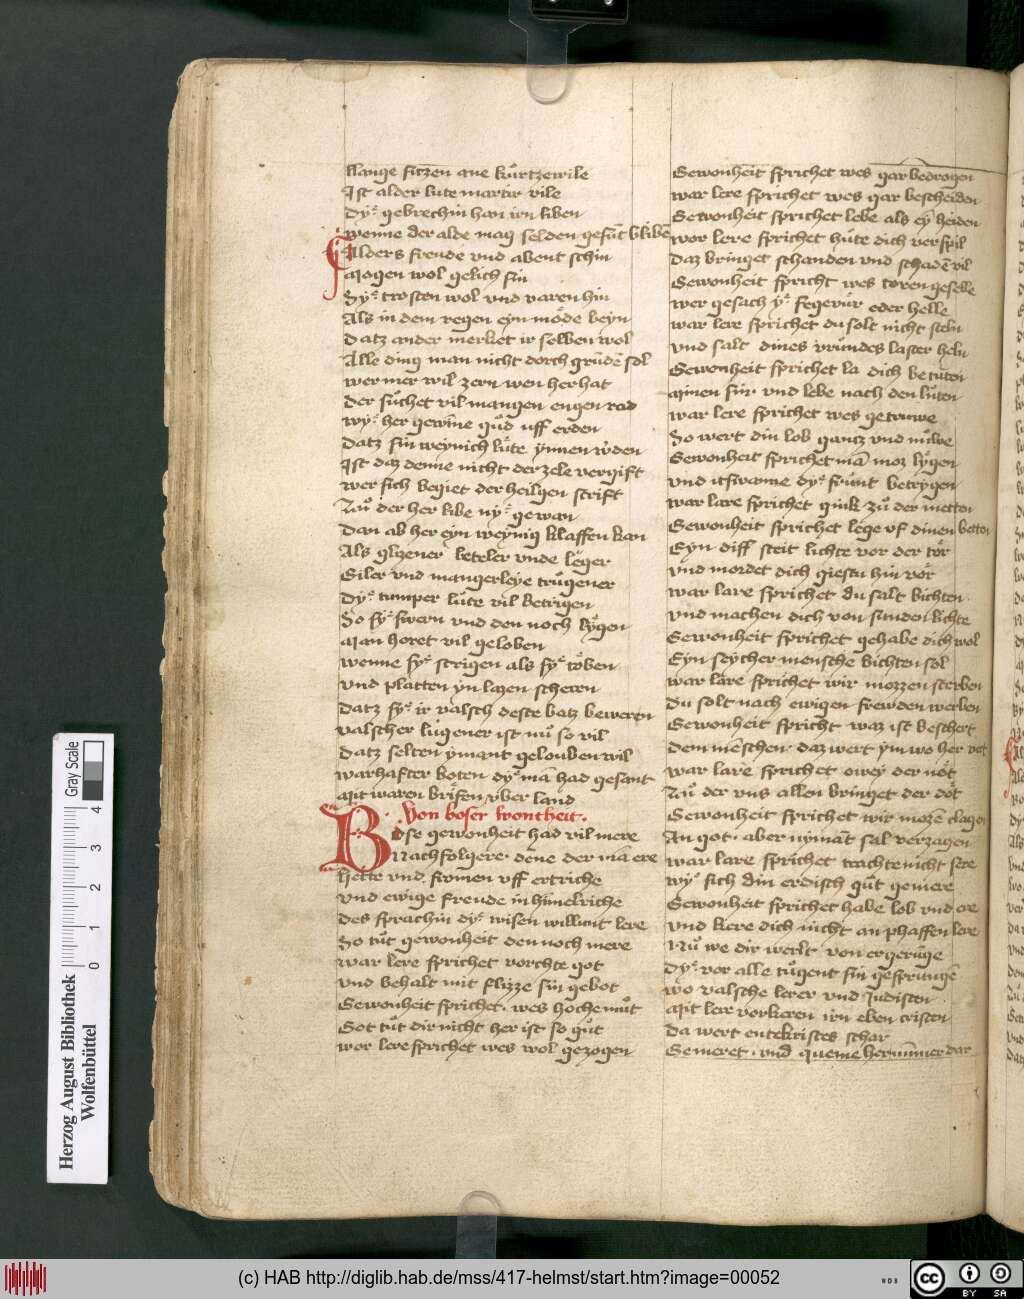 llange sitzen ane kůrtzewile
Ist alder lute martir vile
Dyͤ gebrechin han irn liben
wenne der alde mag selden gesūt bliben
Alders freude vnd abent schin
Mogen wol gelich sin
Syͤ trosten wol vnd varen hin
Als in dem regen eyn mode beyn
Datz ander merket ir selben wol
Alle ding man nicht dorch grūdē sol
wer mer wil zern wen her hat
Der sůchet vil mangen engen rad
wyͤ her gewīne gůd uff erden
Datz sin weynich lůte ynnen werden
Ist daz denne nicht der zele vergift
wer sich begiet der heilgen scrift
Nů der her libe nyͤ gewan
Dan ab her eyn weynig klaffen kan
Als glizener beteler vnde leger
Giler vnd mangerleye trůgener
Dyͤ tumper lůte vil betrigen
So syͤ swern vnd den noch lygen
Man horet vil geloben
wenne syͤ scrigen als syͤ toben
vnd platten yn lazen scheren
Datz syͤ ir valsch deste batz beweren
valscher lugener ist nů so vil
Datz selten ymant gelouben wil
warhafter boten dyͤ mā had gesant
Mit waren brifen vber land
Von boser wontheit.
Bose gewonheit had vil mere
Nachfolgere. dēne der mā ere
Hette vnd fromen vff ertriche
vnd ewige freude in himelriche
Des sprachin dyͤ wisen willicnt lere
So tůt gewonheit den noch mere
war lere sprichet vorchte got
vnd behalt mit flizze sin gebot
Gewonheit sprichet. wes hochemůt
Got tůt dir nicht her ist so gůt
wor lere sprichet wes wol gezogen
Gewonheit sprichet wes gar bedrogen
war lere sprichet wes gar bescheiden
Gewonheit sprichet lebe als eȳ heiden
wor lere sprichet hůte dich ver spil
Daz bringet schanden vnd schadē vil
Gewonheit spricht wes toren geselle
wer gesach yͤ fegevůr eder helle
war lere sprichet du solt nicht steln
vnd salt dines vrundes laster heln
Gewonheit sprichet la dich be tuten
Minen sin vnd lebe nach den luten
war lere sprichet wes getruwe
So wert din lob gantz vnd nůwe
Gewonheit sprichet mā moz lygen
vnd itswanne dyͤ frunt betrygen
war lare sprichet gink zů der metten
Gewonheit sprichet lege vf dinen betten
Eyn diff steit lichte vor der tor
vnd mordet dich giestu hin vor
war lare sprichet du salt bichten
vnd machen dich von sunden lichte
Gewonheit sprichet gehabe dich wol
Eyn seycher mensche bichten sol
war lare sprichet wir mozzen sterben
Du solt nach ewigen frewden werben
Gewonheit spricht waz ist beschert
Dem mēschen. daz wert ym wo her vert
war lare sprichet owey der not
Nů der vns allen bringet der dot
Gewonheit sprichet wir mozē clagen
An got. aber nymāt sal verzagen
war lare sprichet trachte nicht sere
wyͤ sich din erdisch gůt gemere
Gewonheit sprichet habe lob vnd ere
vnd kere dich nicht an phaffen lere
Nů we dir werlt von ergerūge
Dyͤ vor alle tůgent sin gesprungē
wo valsche lerer vnd Judisten
Mit lere vorkeren irn eben cristen
Da wert entekristes schar
Gemeret. vnd queme her nūmer dar
Herzog August Bibliothek
Wolfenbüttel
0 1 2 3 4
Gray Scale
(c) HAB http://diglib.hab.de/mss/417-helmst/start.htm?image=00052
WDB
cc BY SA